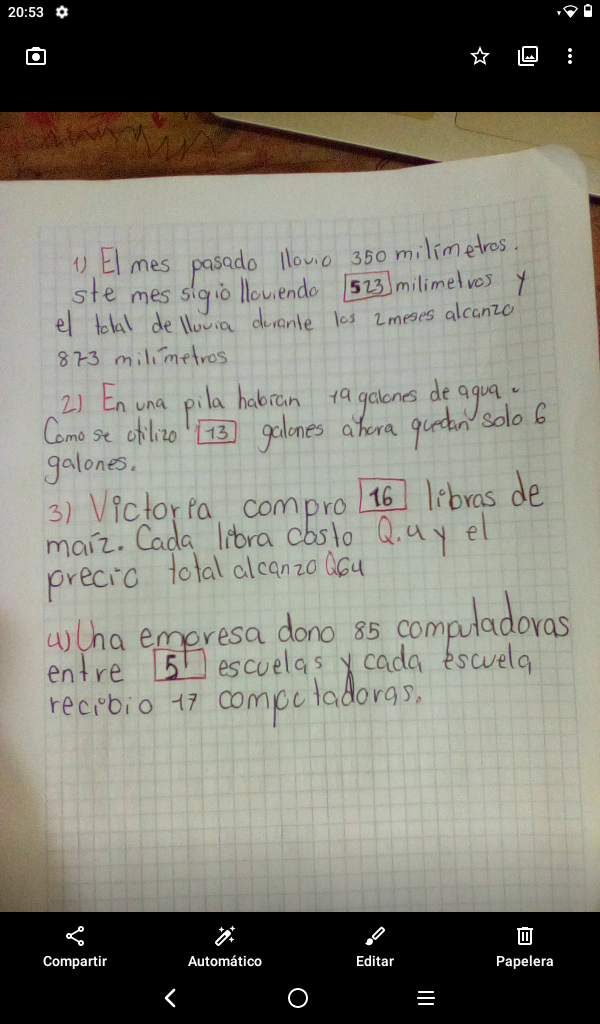 20:53
1) El mes pasado llovio 350 milímetros.
ste mes sigio lloviendo 523 milimetros y
el total de lluvia durante los 2 meses alcanzo
873 milímetros
2) En una pila habían 19 galones de agua.
Como se utilizo 13 galones ahora quedan solo 6
galones.
3) Victoria compro 16 libras de
maíz. Cada libra costo Q.4 y el
precio total alcanzo Q64
4) Una empresa dono 85 computadoras
entre 5 escuelas y cada escuela
recibio 17 computadoras.
Compartir Automático Editar Papelera